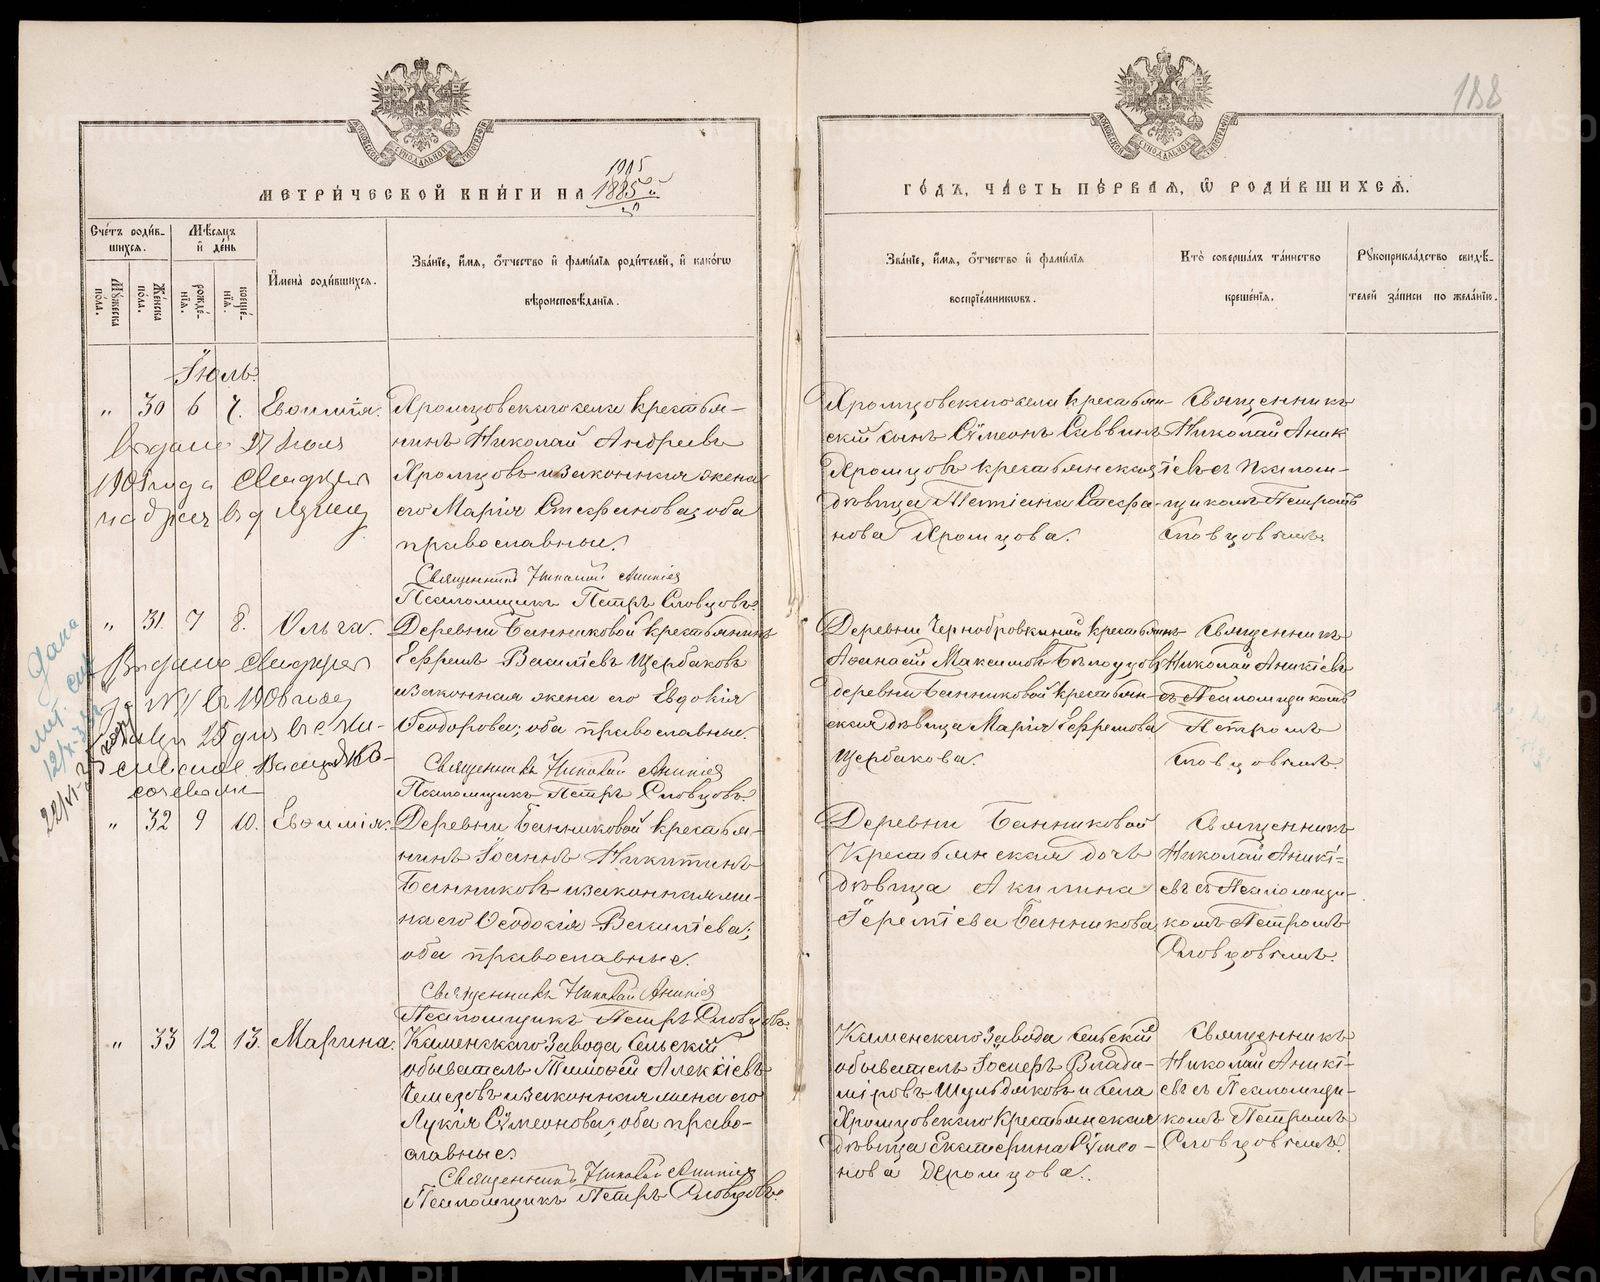 188
МОСКОВСКОЙ СѴНОДАЛЬНОЙ ТИПОГРАФІИ
МОСКОВСКОЙ СѴНОДАЛЬНОЙ ТИПОГРАФІИ
1905
МЕТРИ́ЧЕСКОЙ КНИ́ГИ НА 1885 й
ГО́ДЪ, ЧА́СТЬ ПЕ́РВАЯ, Ѿ РОДИ́ВШИХСЯ.
Сче́тъ роди́вшихся.
Мꙋ́жеска по́ла.
Же́нска по́ла.
Мѣ́сяцъ и҆ де́нь
рожде́нїя.
креще́нїя.
И҆мена̀ роди́вшихся.
Зва́нїе, и҆́мя, ѻ҆́тчество и҆ фами́лїя роди́телей, и҆ како́гѡ
вѣроисповѣ́данїя.
Зва́нїе, и҆́мя, ѻ҆́тчество и҆ фами́лїя
воспрїе́мникѡвъ.
Кто̀ соверша́лъ та́инство
креще́нїя.
Рꙋкоприкла́дство свидѣ́-
телей за́писи по жела́нїю.
Іюль.
„ 30 6 7. Евѳимія.
Хромцовскаго села крестья-
нинъ Николай Андреевъ
Хромцовъ и законная жена
его Марія Стефанова; оба
православные.
Священникъ Николай Аникіев
Псаломщикъ Петръ Словцовъ.
Хромцовскаго села крестьян-
скій сынъ Сѵмеонъ Саввинъ
Хромцовъ крестьянская
дѣвица Татіана Стефа-
нова Хромцова.
Священникъ
Николай Аник
іевъ съ псалом-
щикомъ Петромъ
Словцовымъ.
выдано 27 июля
1908 года
„ 31. 7 8. Ольга.
Деревни Банниковой крестьянинъ
Ефремъ Василіевъ Щербаковъ
и законная жена его Евдокія
Ѳеодорова; оба православные.
Священникъ Николай Аникіев
Псаломщикъ Петръ Словцовъ.
Деревни Чернобровкиной крестьянинъ
Аѳанасій Максимовъ Бѣлоусовъ
деревни Банниковой крестьян-
ская дѣвица Марія Ефремова
Щербакова.
Священникъ
Николай Аникіевъ
съ Псаломщикомъ
Петромъ
Словцовымъ.
„ 32 9 10. Евѳимія.
Деревни Банниковой крестья-
нинъ Іоаннъ Никитинъ
Банниковъ и законная же-
на его Ѳеодосія Василіева;
оба православные.
Священникъ Николай Аникіев
Псаломщикъ Петръ Словцовъ.
Деревни Банниковой
Крестьянская дочь
дѣвица Акилина
Іереміева Банникова
Священникъ
Николай Аникі-
евъ съ Псаломщи-
комъ Петромъ
Словцовымъ.
„ 33 12 13. Марина.
Каменскаго Завода Сельскій
обыватель Тимоѳей Алексіевъ
Чемезовъ и законная жена его
Лукія Сѵмеонова; оба право-
славные.
Священникъ Николай Аникіев
Псаломщикъ Петръ Словцовъ.
Каменскаго Завода сельскій
обыватель Іосифъ Влади-
міровъ Шульдяковъ и села
Хромцовскаго Крестьянская
дѣвица Екатерина Сѵмео-
нова Хромцова.
Священникъ
Николай Аникі-
евъ съ Псаломщи-
комъ Петромъ
Словцовымъ.